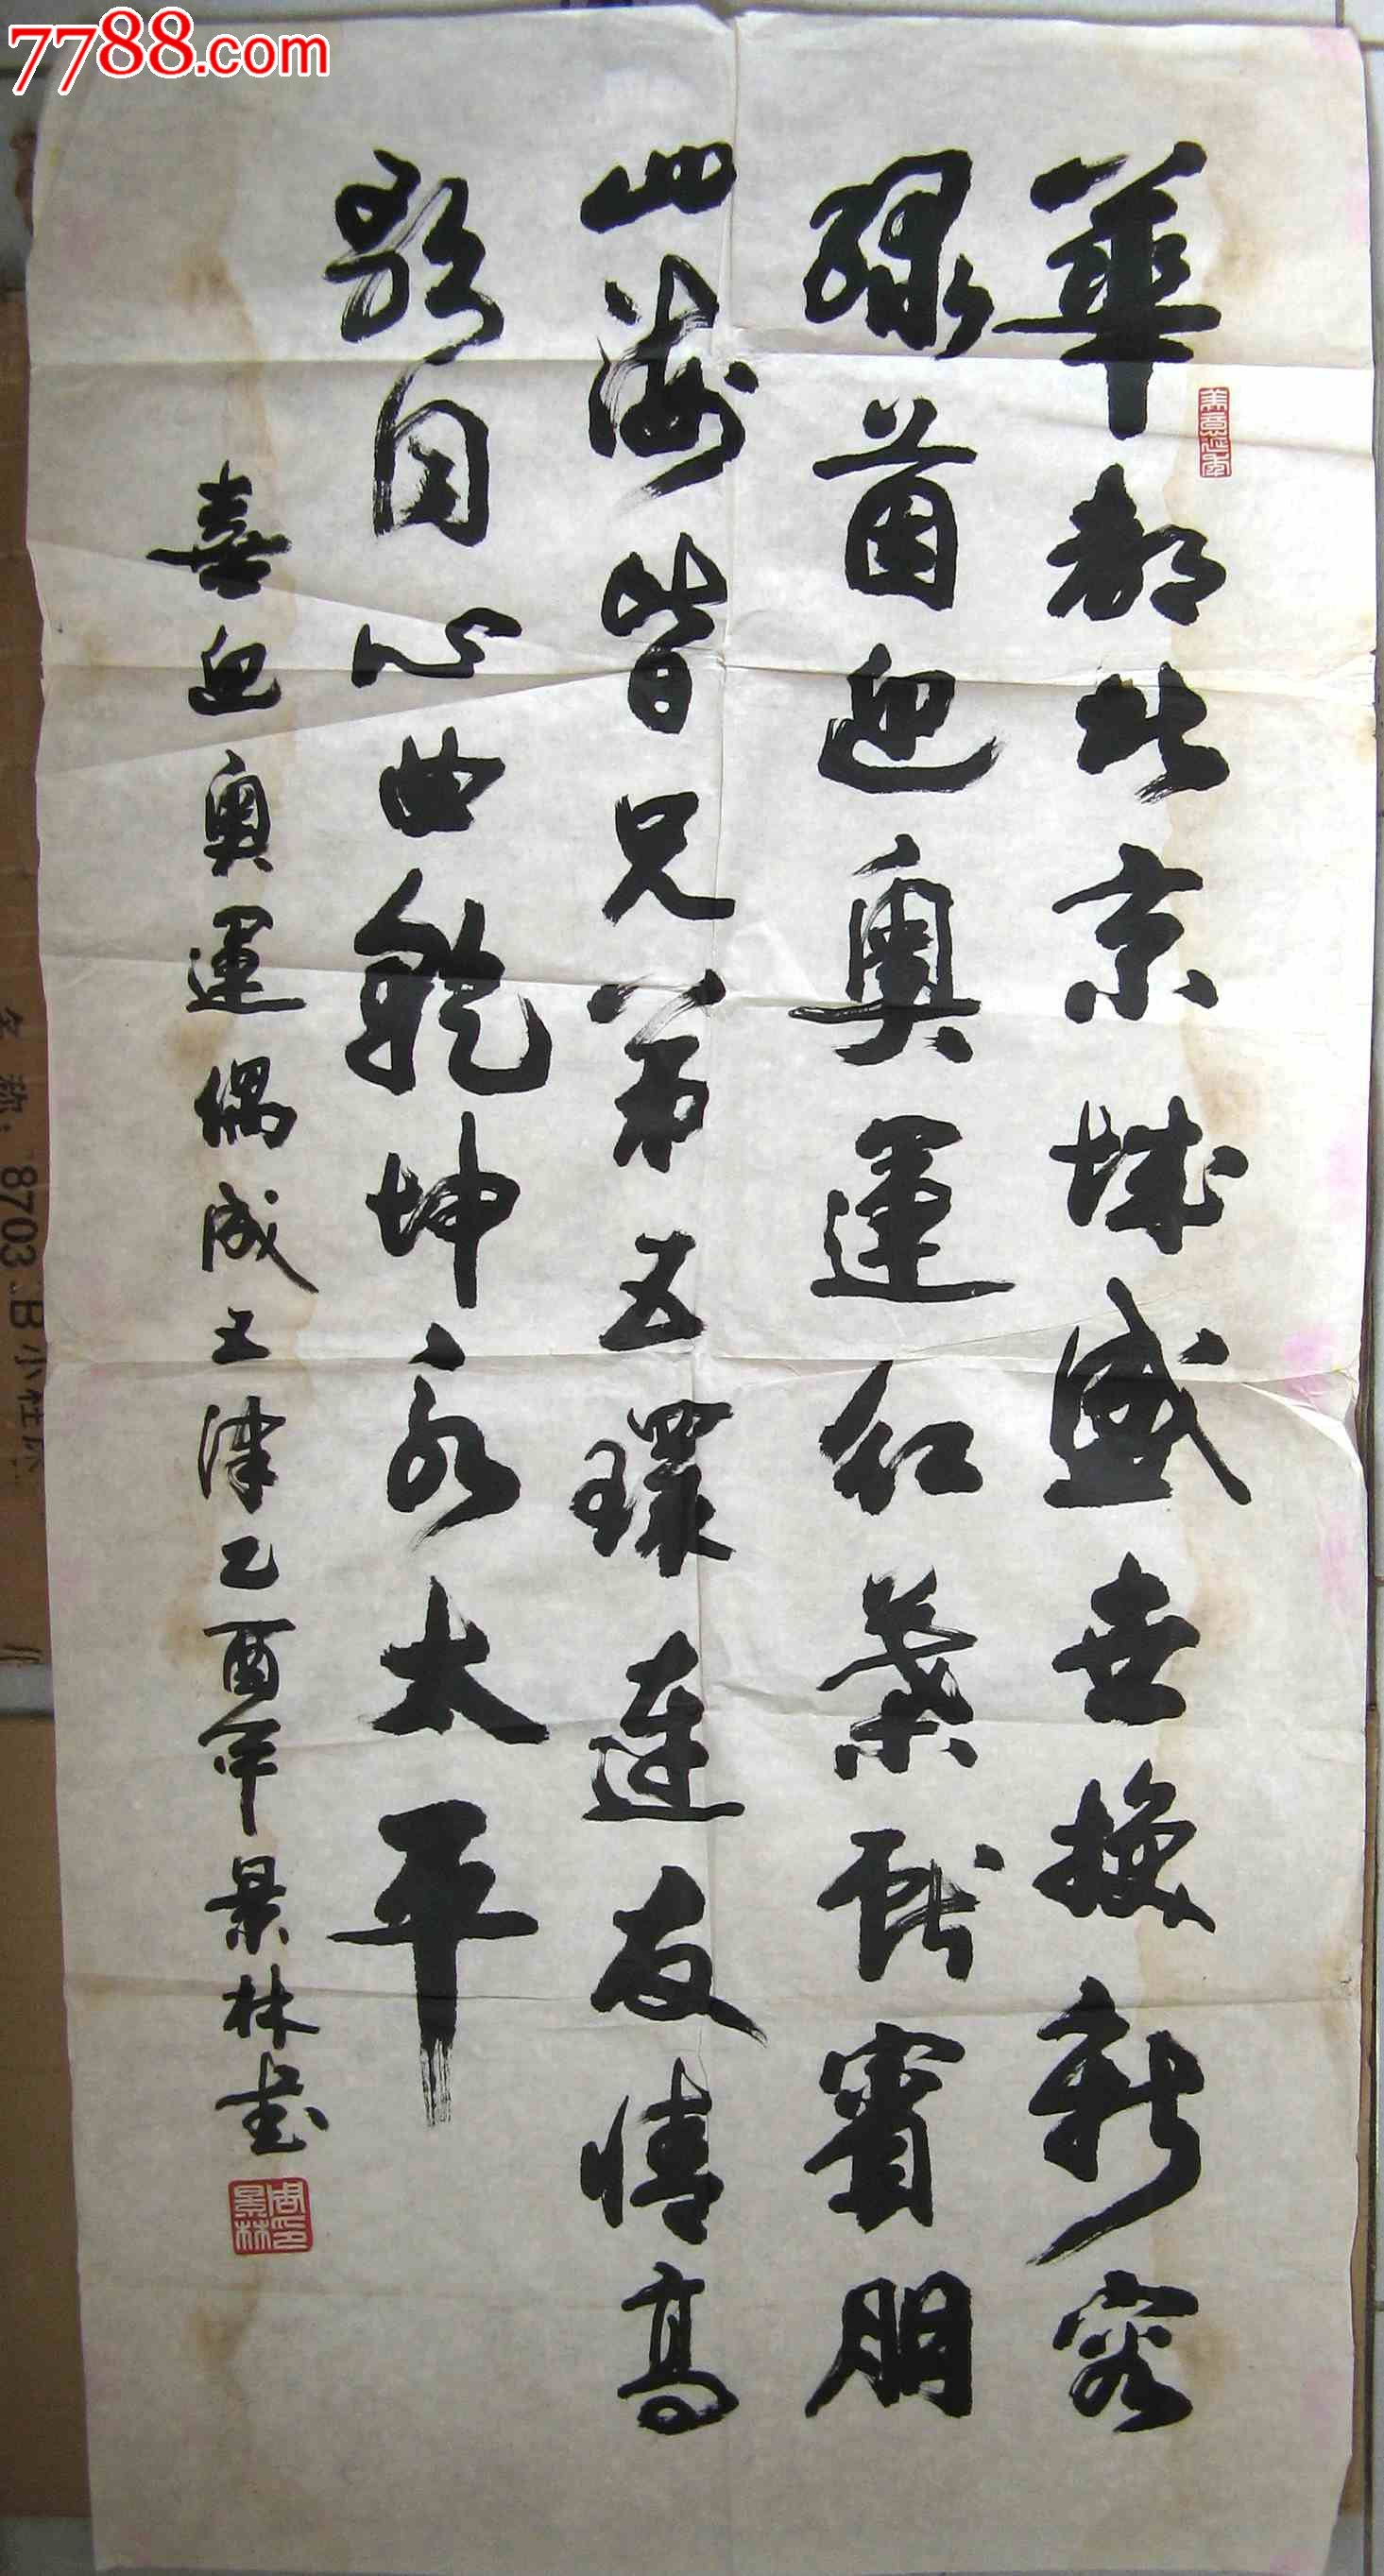 華都北京城盛世換新容
緑茵迎奧運紅葉獻賓朋
四海皆兄弟五環連友情高
歌同心曲乾坤永太平
喜迎奧運偶成于津乙酉年景林書
周景林印
7788.com
8703.B